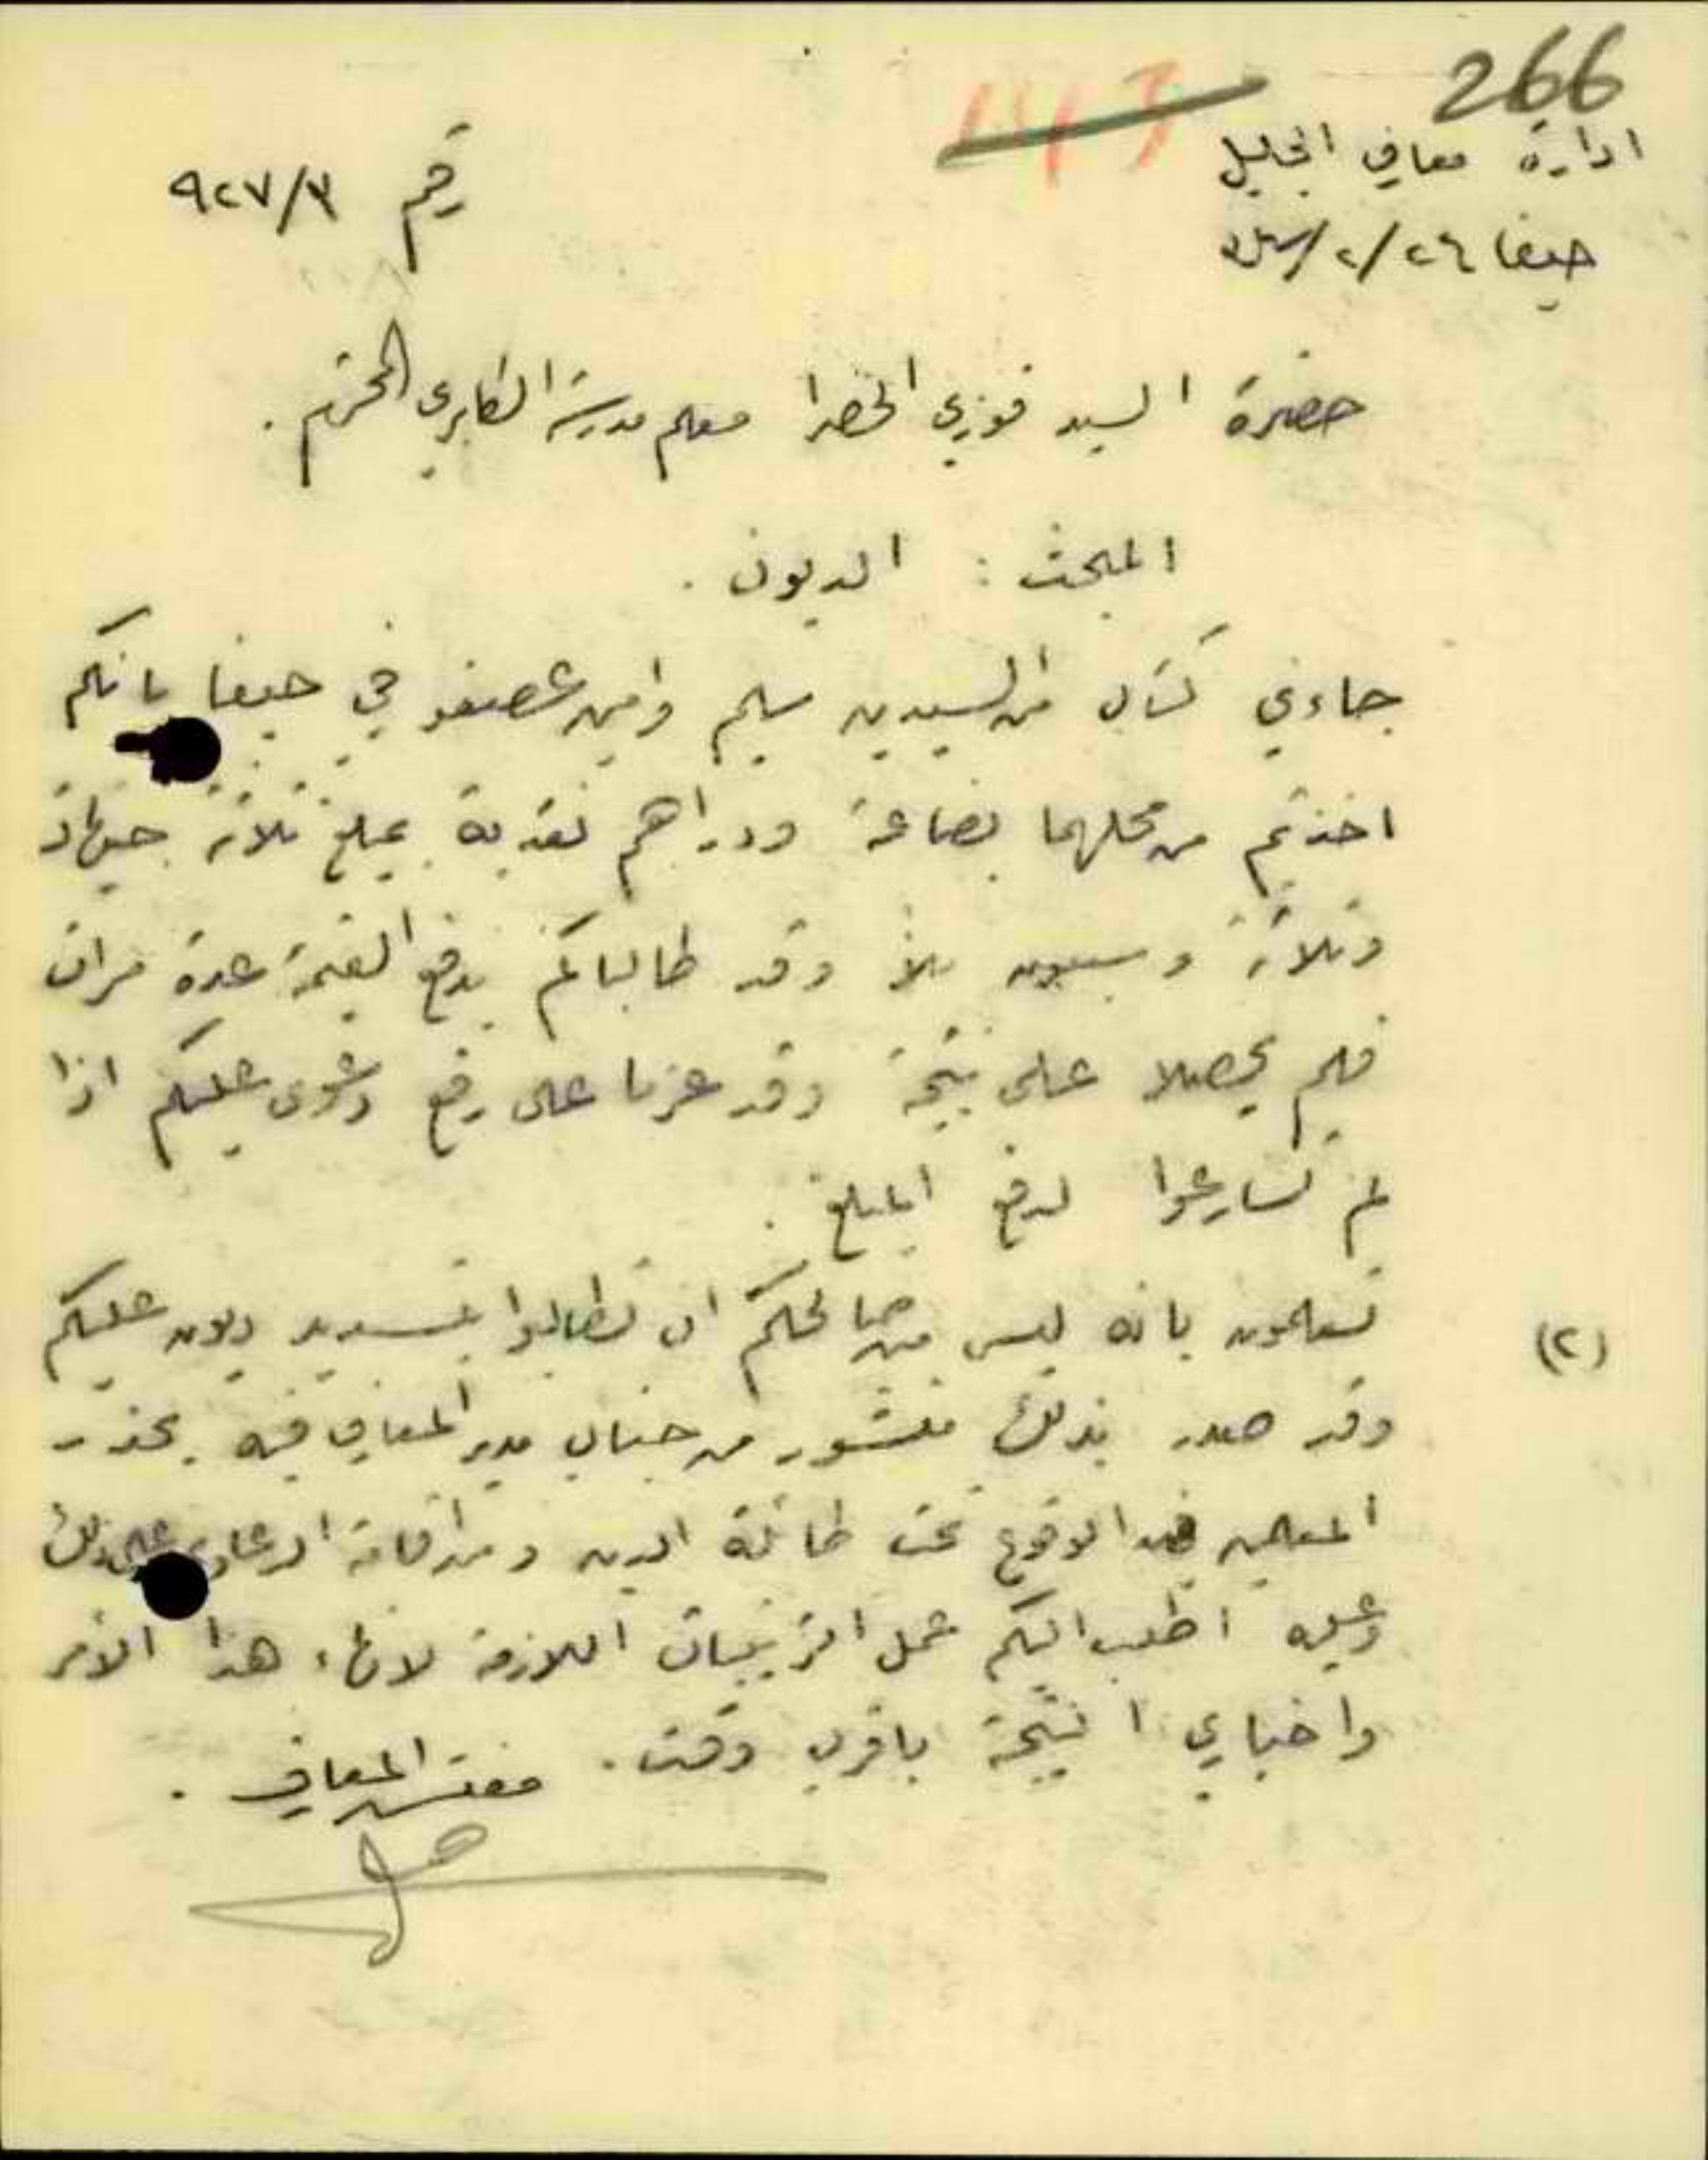 266
ادارة معارف الجليل
رقم ٩٢٧/٣
حيفا ٢٦/٢/
حضرة السيد فوزي الخضرا معلم مدرسة الكابري المحترم .
المبحث : الديون .
جاءني كتاب من السيدين سليم وامين عصفور في حيفا بانكم
اخذتم من محلهما بضاعة ودراهم نقدية بمبلغ ثلاثة جنيهات
وثلاثة وسبعون ملاً وقد طالباكم بدفع القيمة عدة مرات
فلم يحصلا على نتيجة وقد عزما على رفع دعوى عليكم اذا
لم تسارعوا لدفع المبلغ .
(٢) تعلمون بانه ليس من صالحكم ان تطالبوا بتسديد ديون عليكم
وقد صدر بذلك منشور من جناب مدير المعارف فيه يحذر
المعلمين من الوقوع تحت طائلة الدين ومن اقامة الدعاوي على ذلك
وعليه اطلب اليكم عمل الترتيبات اللازمة لانهاء هذا الأمر
واخباري النتيجة باقرب وقت . مفتش المعارف .